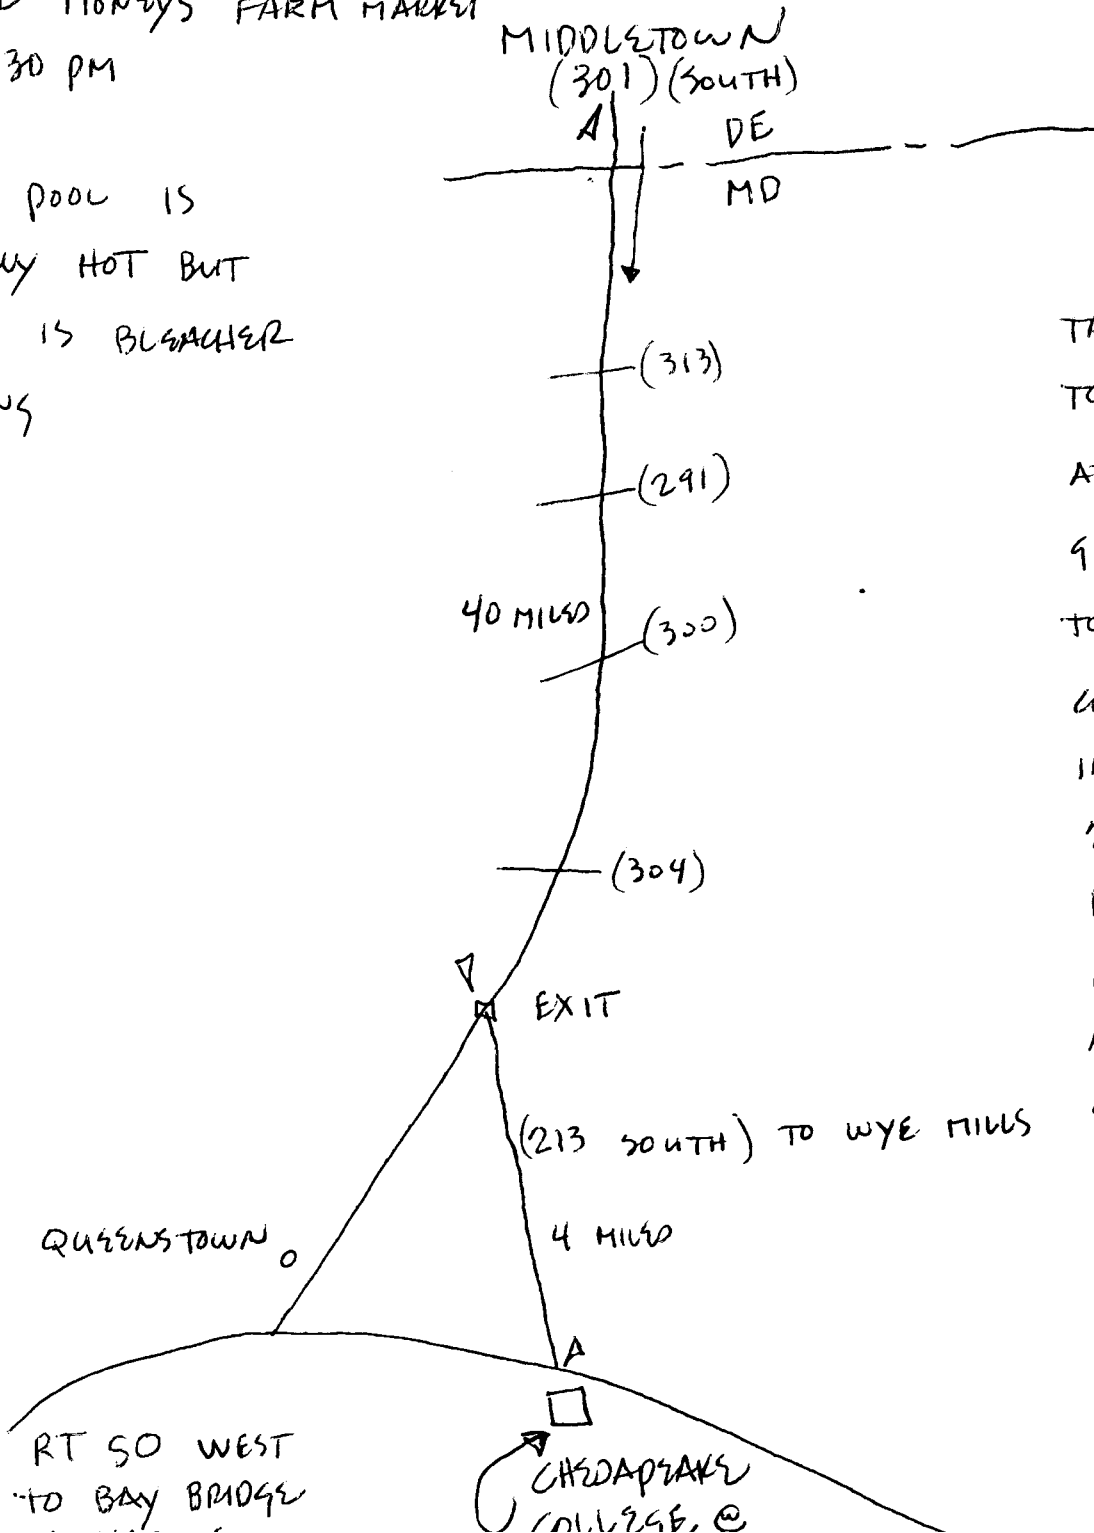 HONEYS FARM MARKET
30 PM
POOL IS
HOT BUT
IS BLEACHER
MIDDLETOWN
(301) (SOUTH)
DE
MD
(313)
(291)
40 MILES
(300)
(304)
EXIT
(213 SOUTH) TO WYE MILLS
4 MILES
QUEENSTOWN
RT 50 WEST
TO BAY BRIDGE
CHESAPEAKE
COLLEGE @
TO
TO